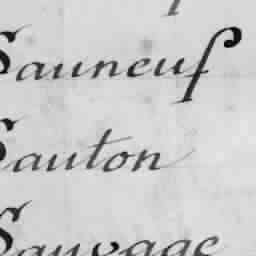 Sauneuf
Sauton
Sauvage